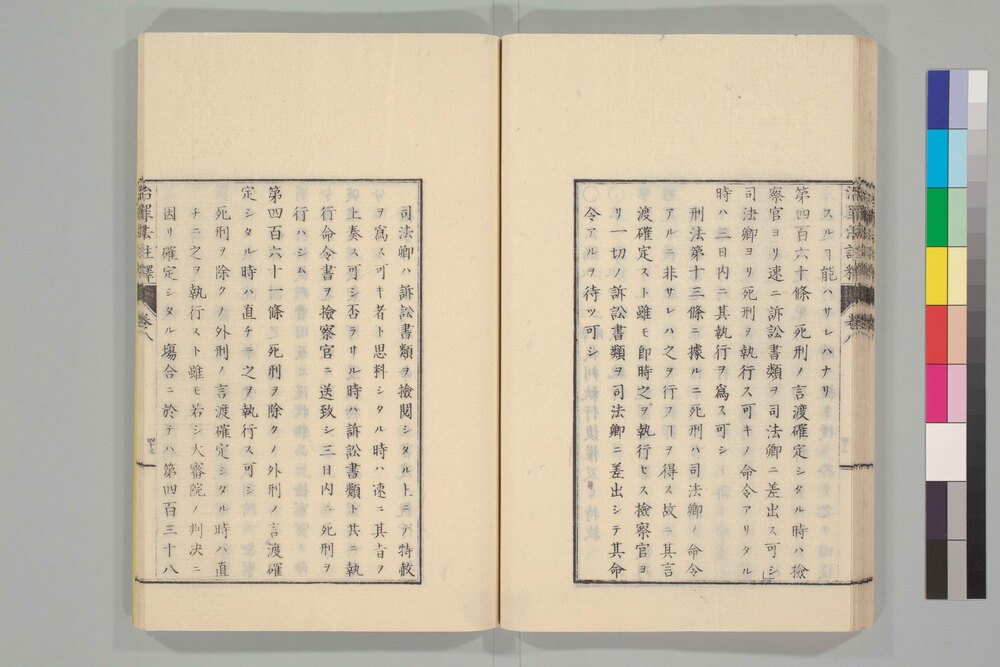 スルヿ能ハサレハナリ
第四百六十條 死刑ノ言渡確定シタル時ハ撿
察官ヨリ速ニ訴訟書類ヲ司法卿ニ差出ス可シ
司法卿ヨリ死刑ヲ執行ス可キノ命令アリタル
時ハ三日內ニ其執行ヲ爲ス可シ
刑法第十三條ニ據ルニ死刑ハ司法卿ノ命令
アルニ非サレハ之ヲ行フヿヲ得ス故ニ其言
渡確定スト雖モ卽時之ヲ執行セス撿察官ヨ
リ一切ノ訴訟書類ヲ司法卿ニ差出シテ其命
令アルヲ待ツ可シ
司法卿ハ訴訟書類ヲ撿閱シタル上ニテ特赦
ヲ爲ス可キ者ト思料シタル時ハ速ニ其旨ヲ
上奏ス可シ否ラサル時ハ訴訟書類ト共ニ執
行命令書ヲ撿察官ニ送致シ三日內ニ死刑ヲ
行ハシム
第四百六十一條 死刑ヲ除クノ外刑ノ言渡確
定シタル時ハ直チニ之ヲ執行ス可シ
死刑ヲ除クノ外刑ノ言渡確定シタル時ハ直
チニ之ヲ執行スト雖モ若シ大審院ノ判决ニ
因リ確定シタル塲合ニ於テハ第四百三十八
治罪法註釋 卷八